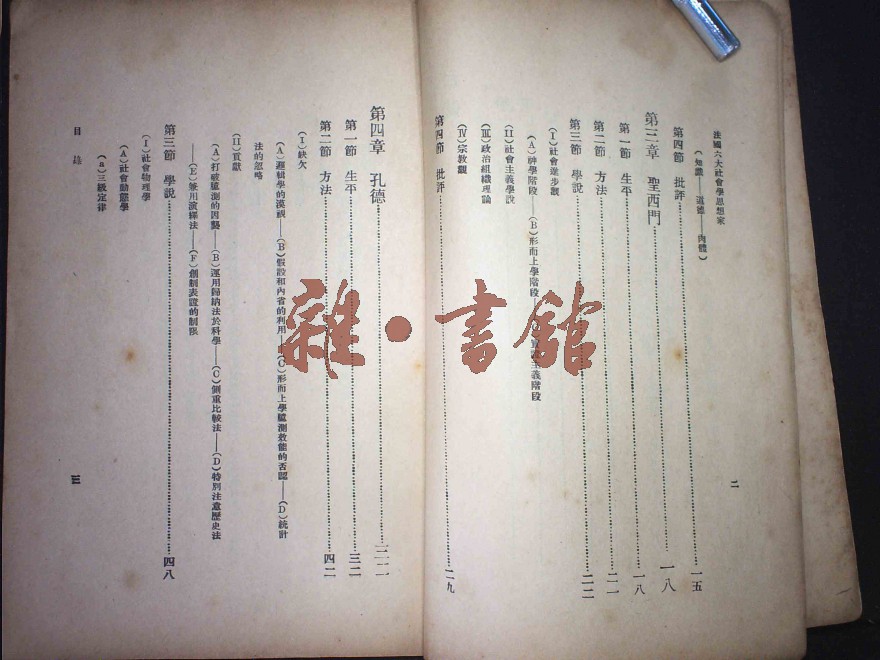 法國六大社會學思想家
二
(知識——道德——肉體)
第四節 批評……一五
第三章 聖西門……一八
第一節 生平……一八
第二節 方法……二一
第三節 學說……二二
(I)社會進步觀
(A)神學階段——(B)形而上學階段 義階段
(II)社會主義學說
(III)政治組織理論
(IV)宗教觀
第四節 批評……二九
第四章 孔德……三二
第一節 生平……三二
第二節 方法……四二
(I)缺欠
(A)邏輯學的漠視——(B)假設和內省的利用 (C)形而上學臆測效能的否認——(D)統計
法的忽略
(II)貢獻
(A)打破臆測的因襲——(B)運用歸納法於科學——(C)側重比較法——(D)特別注意歷史法
——(E)兼用演繹法——(F)創制表證的制限
第三節 學說……四八
(I)社會物理學
(A)社會動態學
(a)三級定律
目錄
三
雜·書館